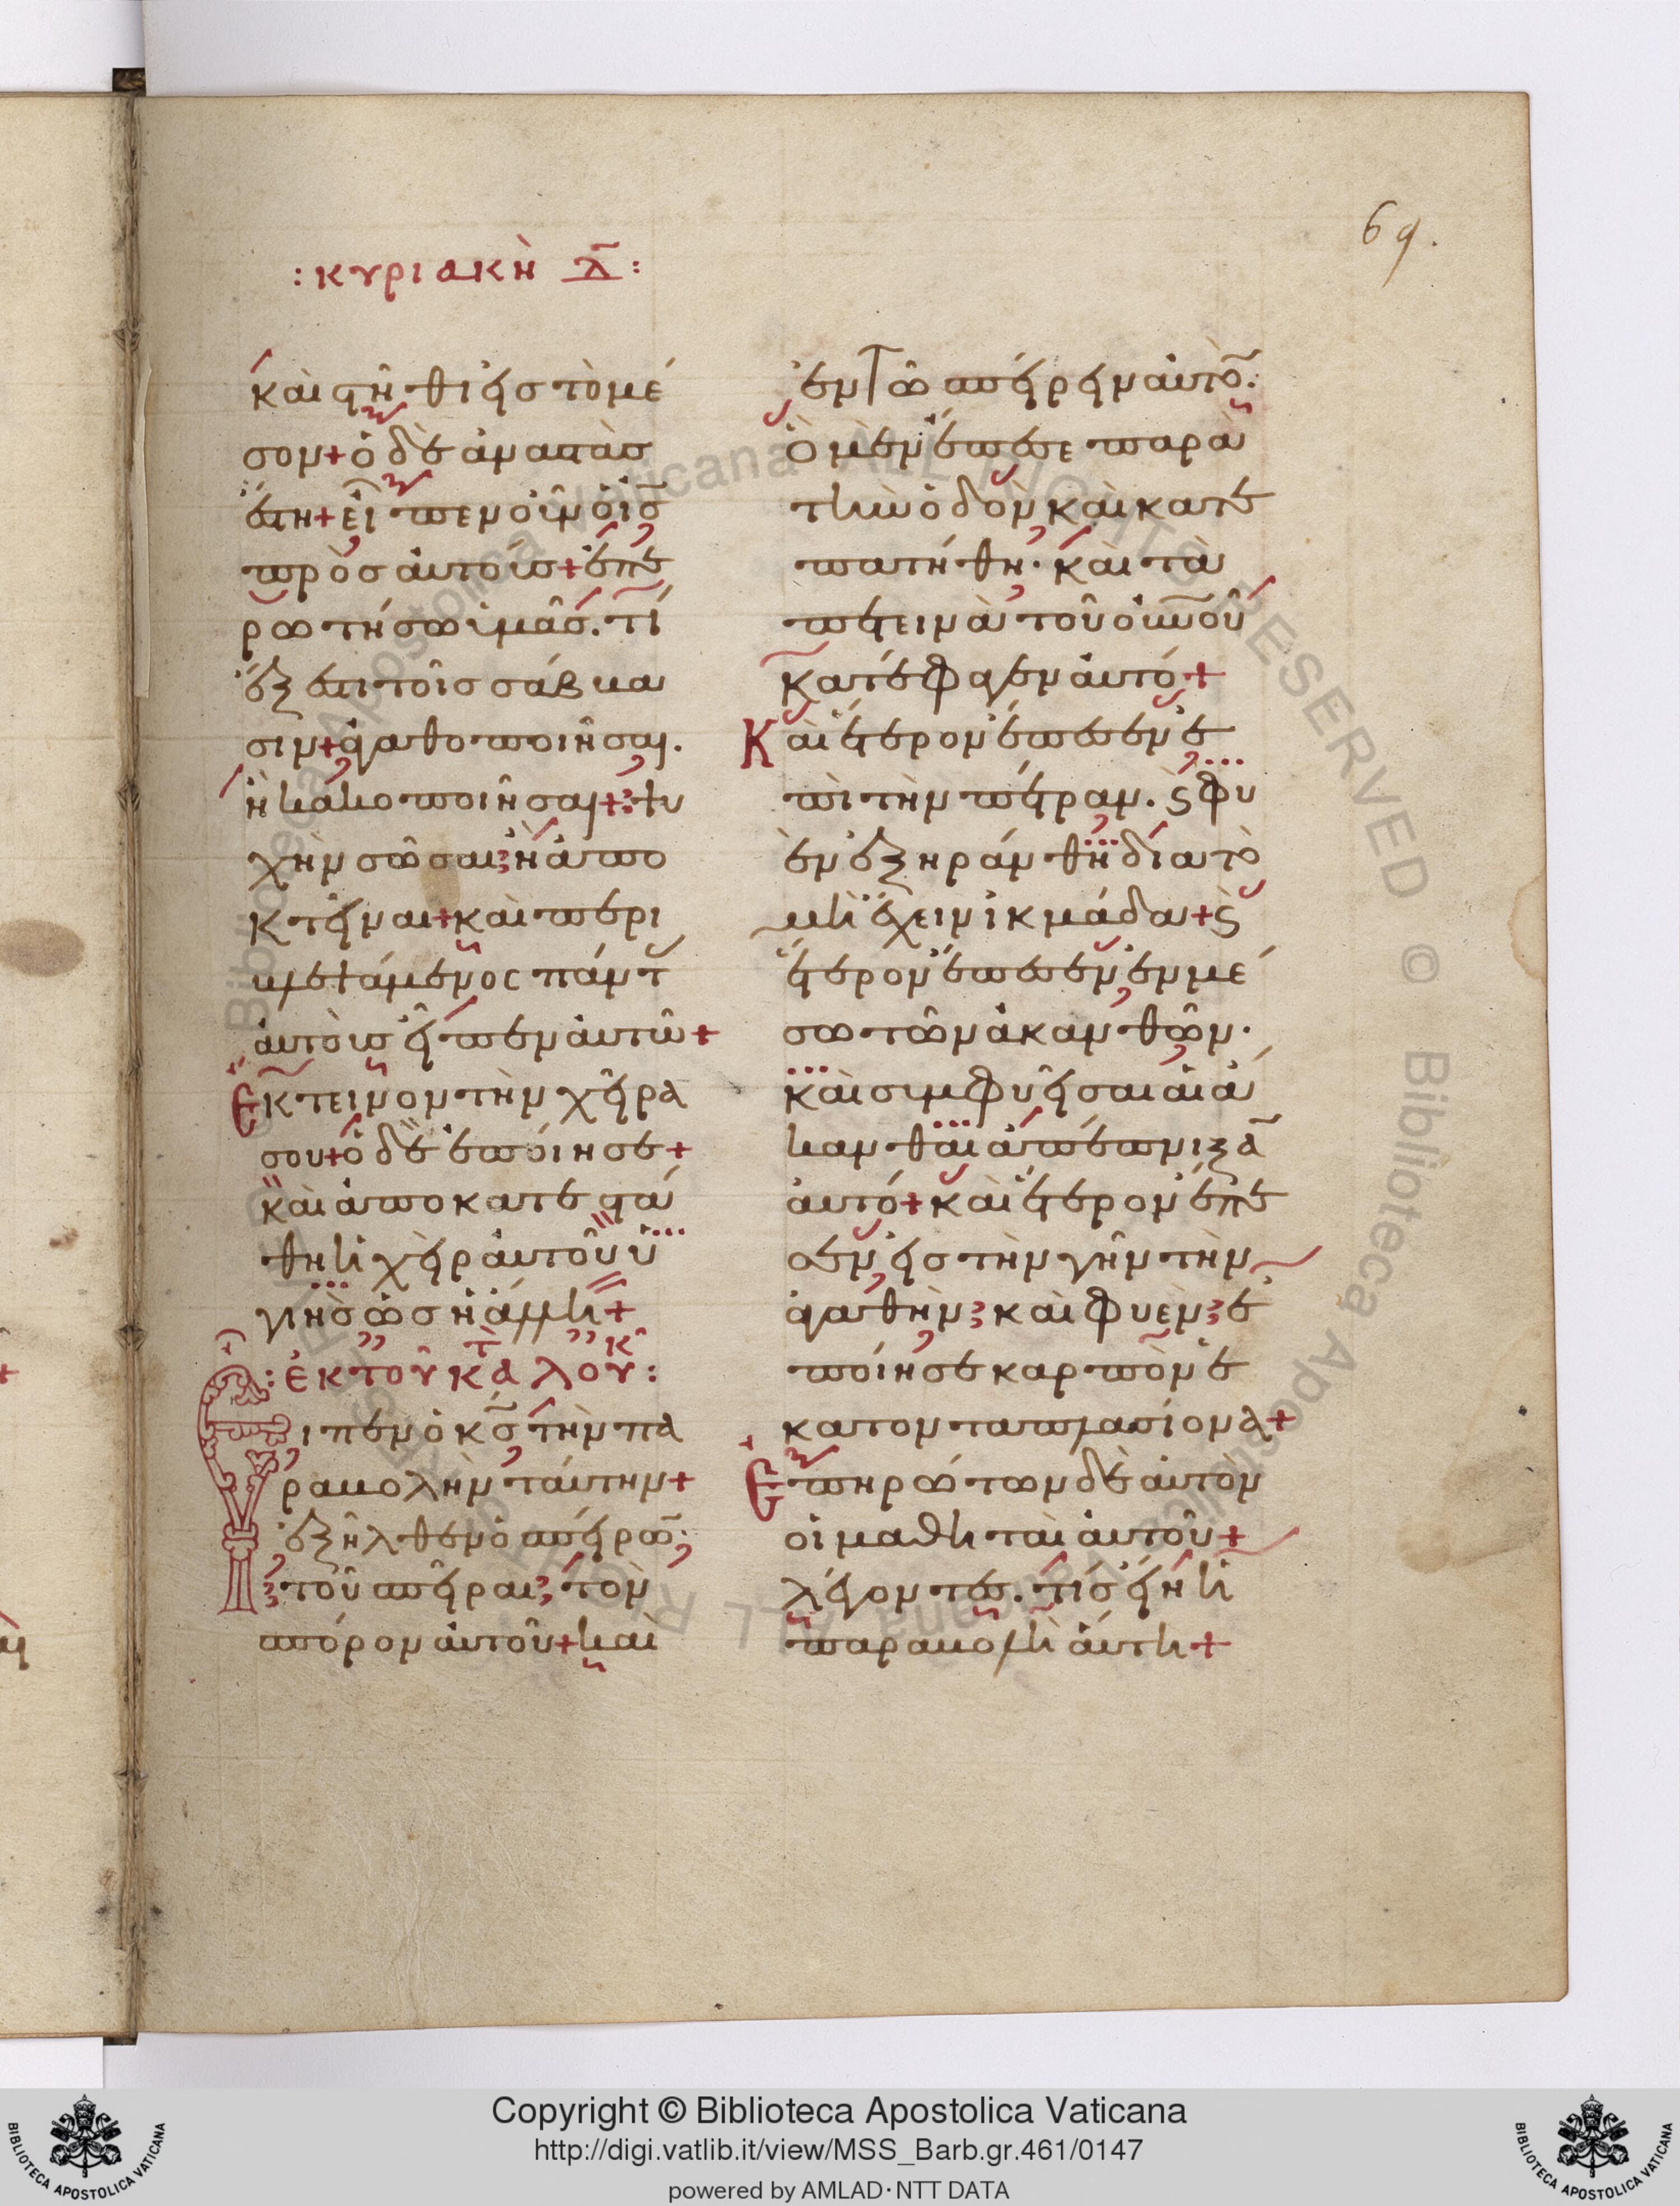 69.
: κυριακὴ Δ̅ :
καὶ στῆθι εἰς τὸ μέ
σον + ὁ δὲ ἀναστὰς
ἔστη + εἶπεν οὖν ὁ ις̅
πρὸς αὐτούς + ἐπε
ρωτήσω ὑμᾶς. τί
ἔξεστι τοῖς σάββα
σιν + ἀγαθοποιῆσαι.
ἢ κακοποιῆσαι + ψυ
χὴν σῶσαι ἢ ἀπο
κτεῖναι + καὶ περι
βλεψάμενος πάντ
αὐτοὺς εἶπεν αὐτῶ +
Ἔκτεινον τὴν χεῖρα
σου + ὁ δὲ ἐποίησε +
καὶ ἀποκατεστά
θη ἡ χεὶρ αὐτοῦ ὑ
γιὴς ὡς ἡ ἄλλη +
: ἐκ τοῦ κατ̀ λουκ̑ :
Εἶπεν ὁ κς̅ τὴν πα
ραβολὴν ταύτην +
ἐξῆλθεν ὁ σπείρων
τοῦ σπεῖραι τὸν
σπόρον αὐτοῦ + καὶ
ἐν τῶ σπείρειν αὐτὸ̅.
Ὃ μὲν ἔπεσε παρὰ
τὴν ὁδὸν καὶ κατε
πατήθη · καὶ τὰ
πετεινὰ τοῦ οὐνοῦ
κατέφαγεν αὐτό +
Καὶ ἕτερον ἔπεσεν ἐ
πὶ τὴν πέτραν. ϛ φυ
ὲν ἐξηράνθη διὰ τὸ
μὴ ἔχειν ἰκμάδα + ϛ
ἕτερον ἔπεσεν ἐν μέ
σω τῶν ἀκανθῶν ·
καὶ συμφυεῖσαι αἱ ἄ
κανθαι ἀπέπνιξα̅
αὐτό + καὶ ἕτερον ἔπε
σεν εἰς τὴν γῆν τὴν
ἀγαθὴν καὶ φυὲν ἐ
ποίησε καρπὸν ἑ
κατονταπλασίονα +
Ἐπηρώτων δὲ αὐτὸν
οἱ μαθηταὶ αὐτοῦ +
λέγοντες. τίς εἴη ἡ
παραβολὴ αὕτη +
Copyright © Biblioteca Apostolica Vaticana
http://digi.vatlib.it/view/MSS_Barb.gr.461/0147
powered by AMLAD · NTT DATA